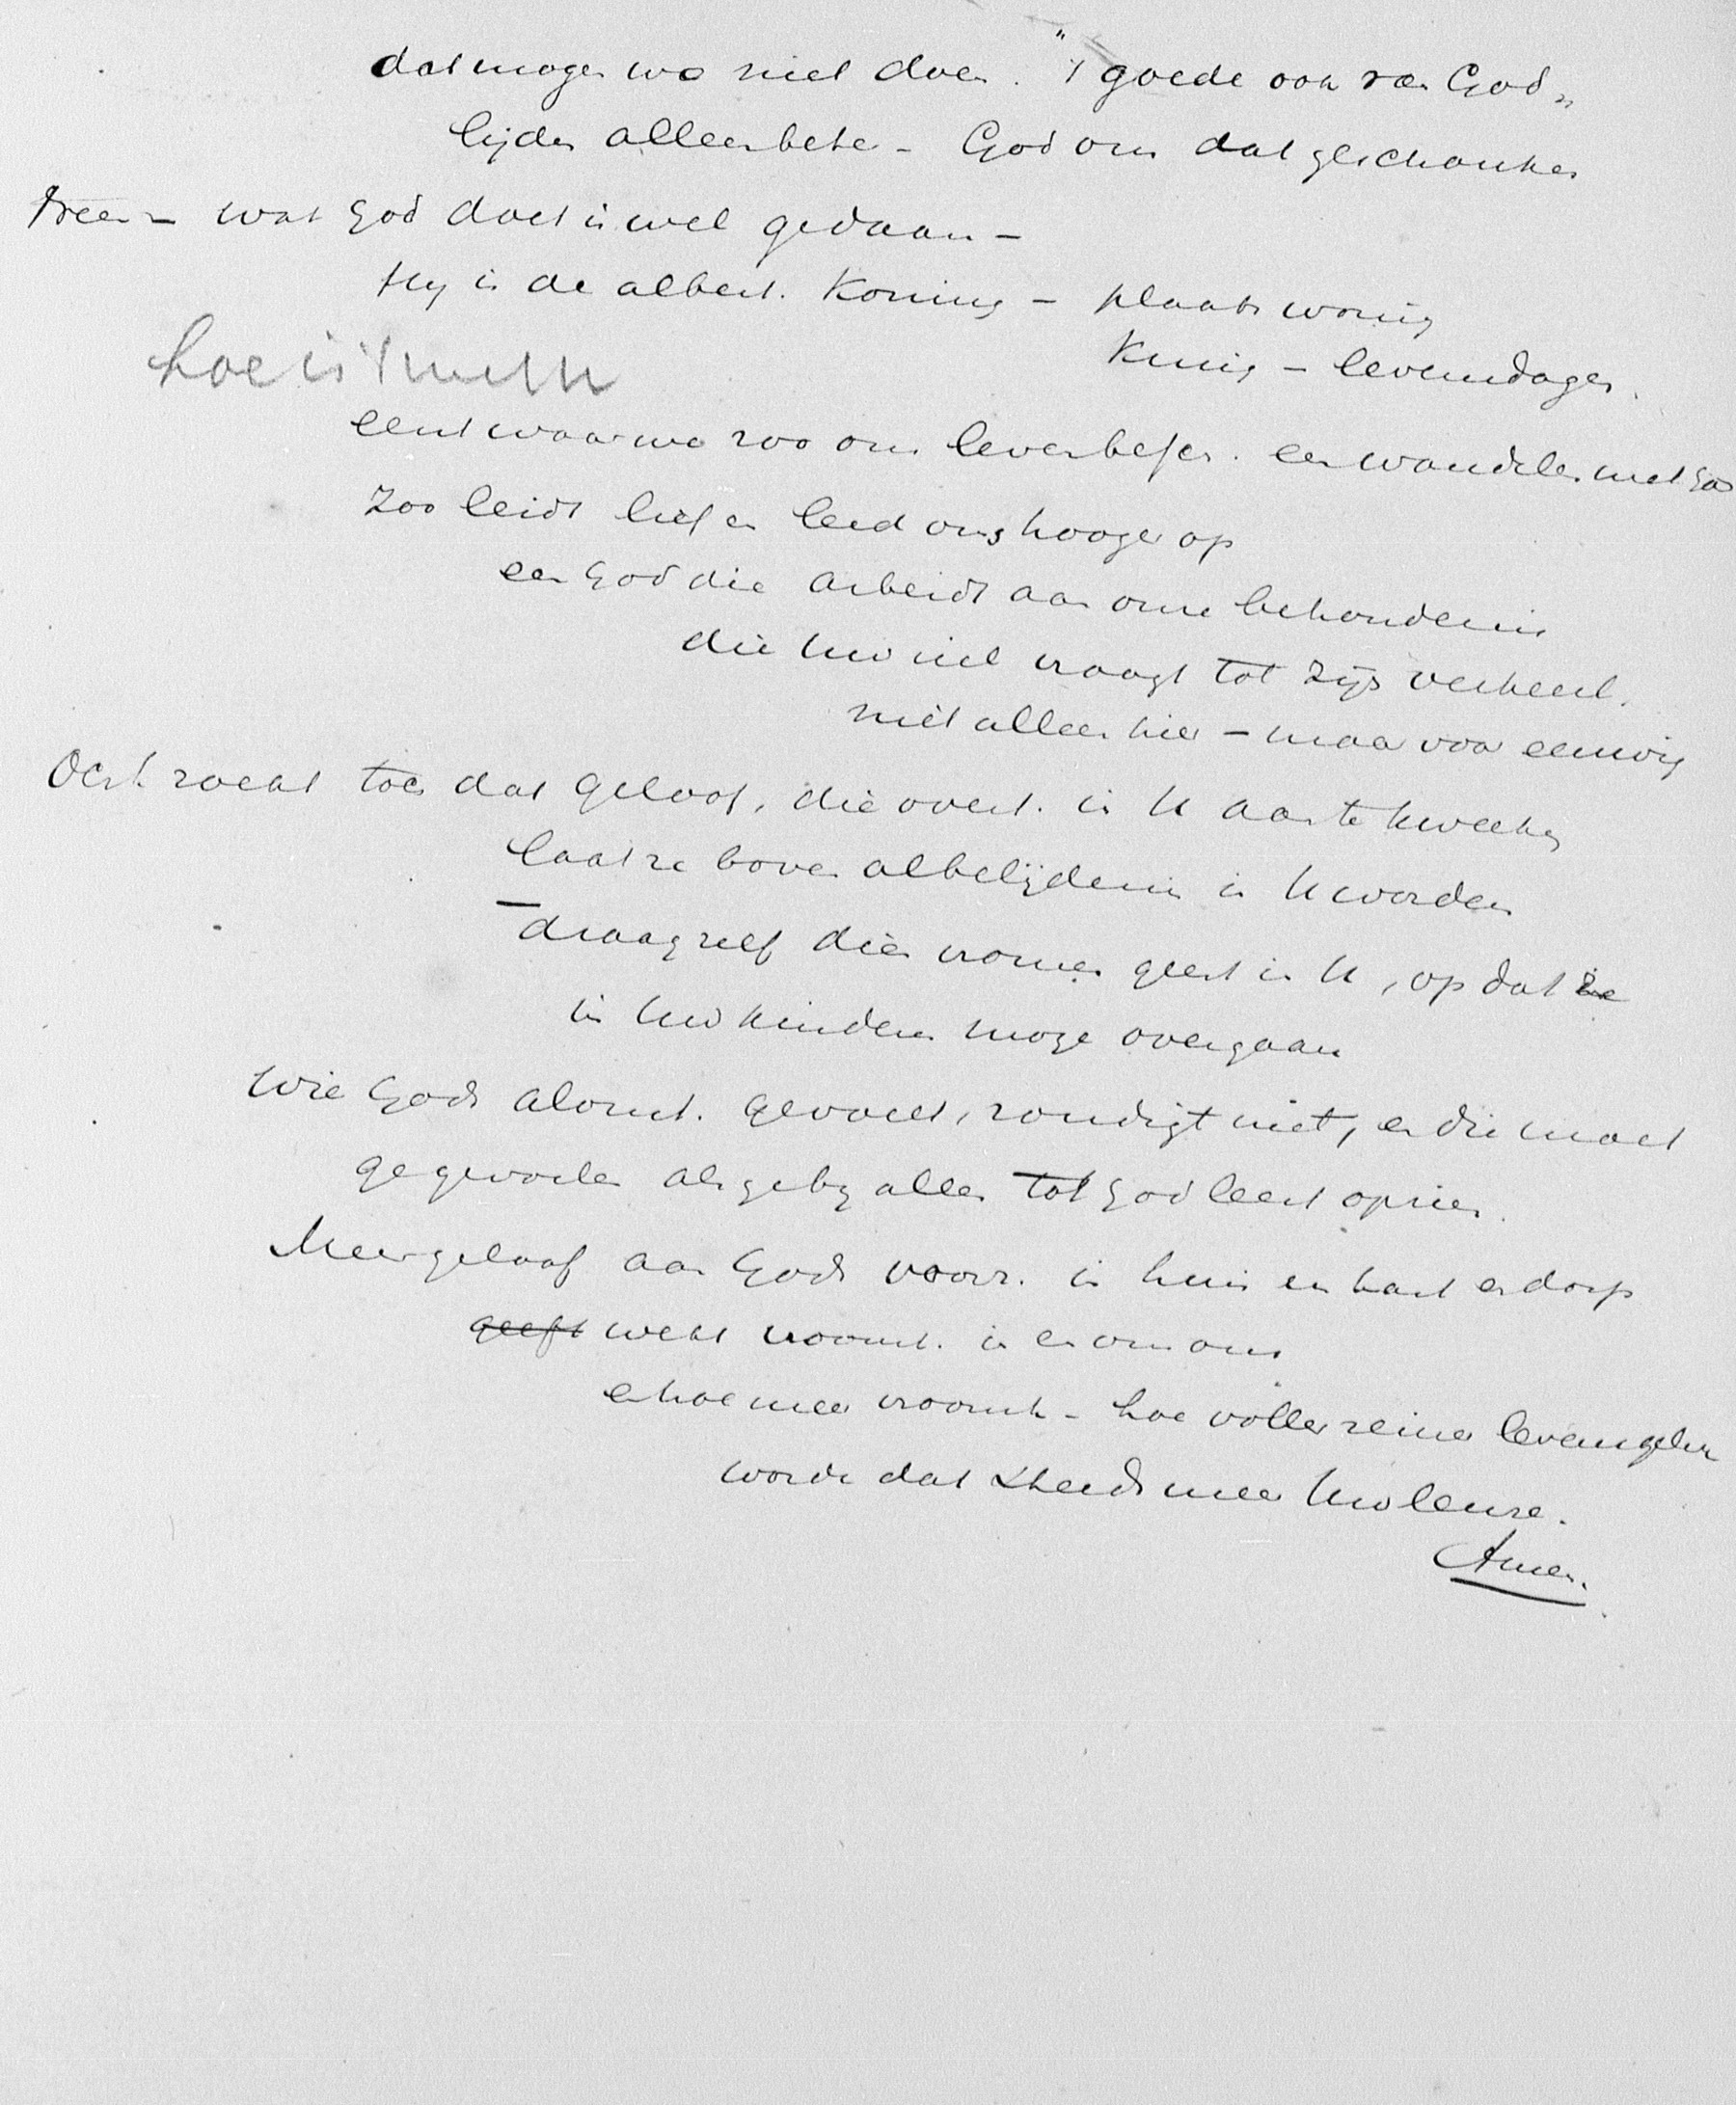 dat mogen we niet doen. "'t goede ook van God"
lijden alleen beter - God ons dat geschonken
Neen - wat God doet is wel gedaan -
Hy is de albest. Koning - plaats woning
hoe is 't
Kruis - levensdagen.
eerst waar we zoo ons leven besef. een wandelen met God
Zoo leidt lief en leed ons hooger op
een God die arbeidt aan onze behoudenis
die Uw ziel vraagt tot Zijn verheerl.
niet alleen hier - maar voor eeuwig
Och zoekt toch dat geloof, die overt. in U aan te kweeken
laat ze boven al belijdenis in U worden
- draag zelf dien vromen geest in U, opdat ze
in Uw kinderen moge overgaan
Wie Gods alomt. gevoelt, zondigt niet, en die moet
ge gevoelen als ge by alles tot God leert opzien.
Meer geloof aan Gods voorz. in huis en hart en dorp
geeft wekt vroomh. in en om ons
en hoe meer vroomh - hoe voller reiner levensgeluk
worde dat steeds meer Uw leuze.
Amen.